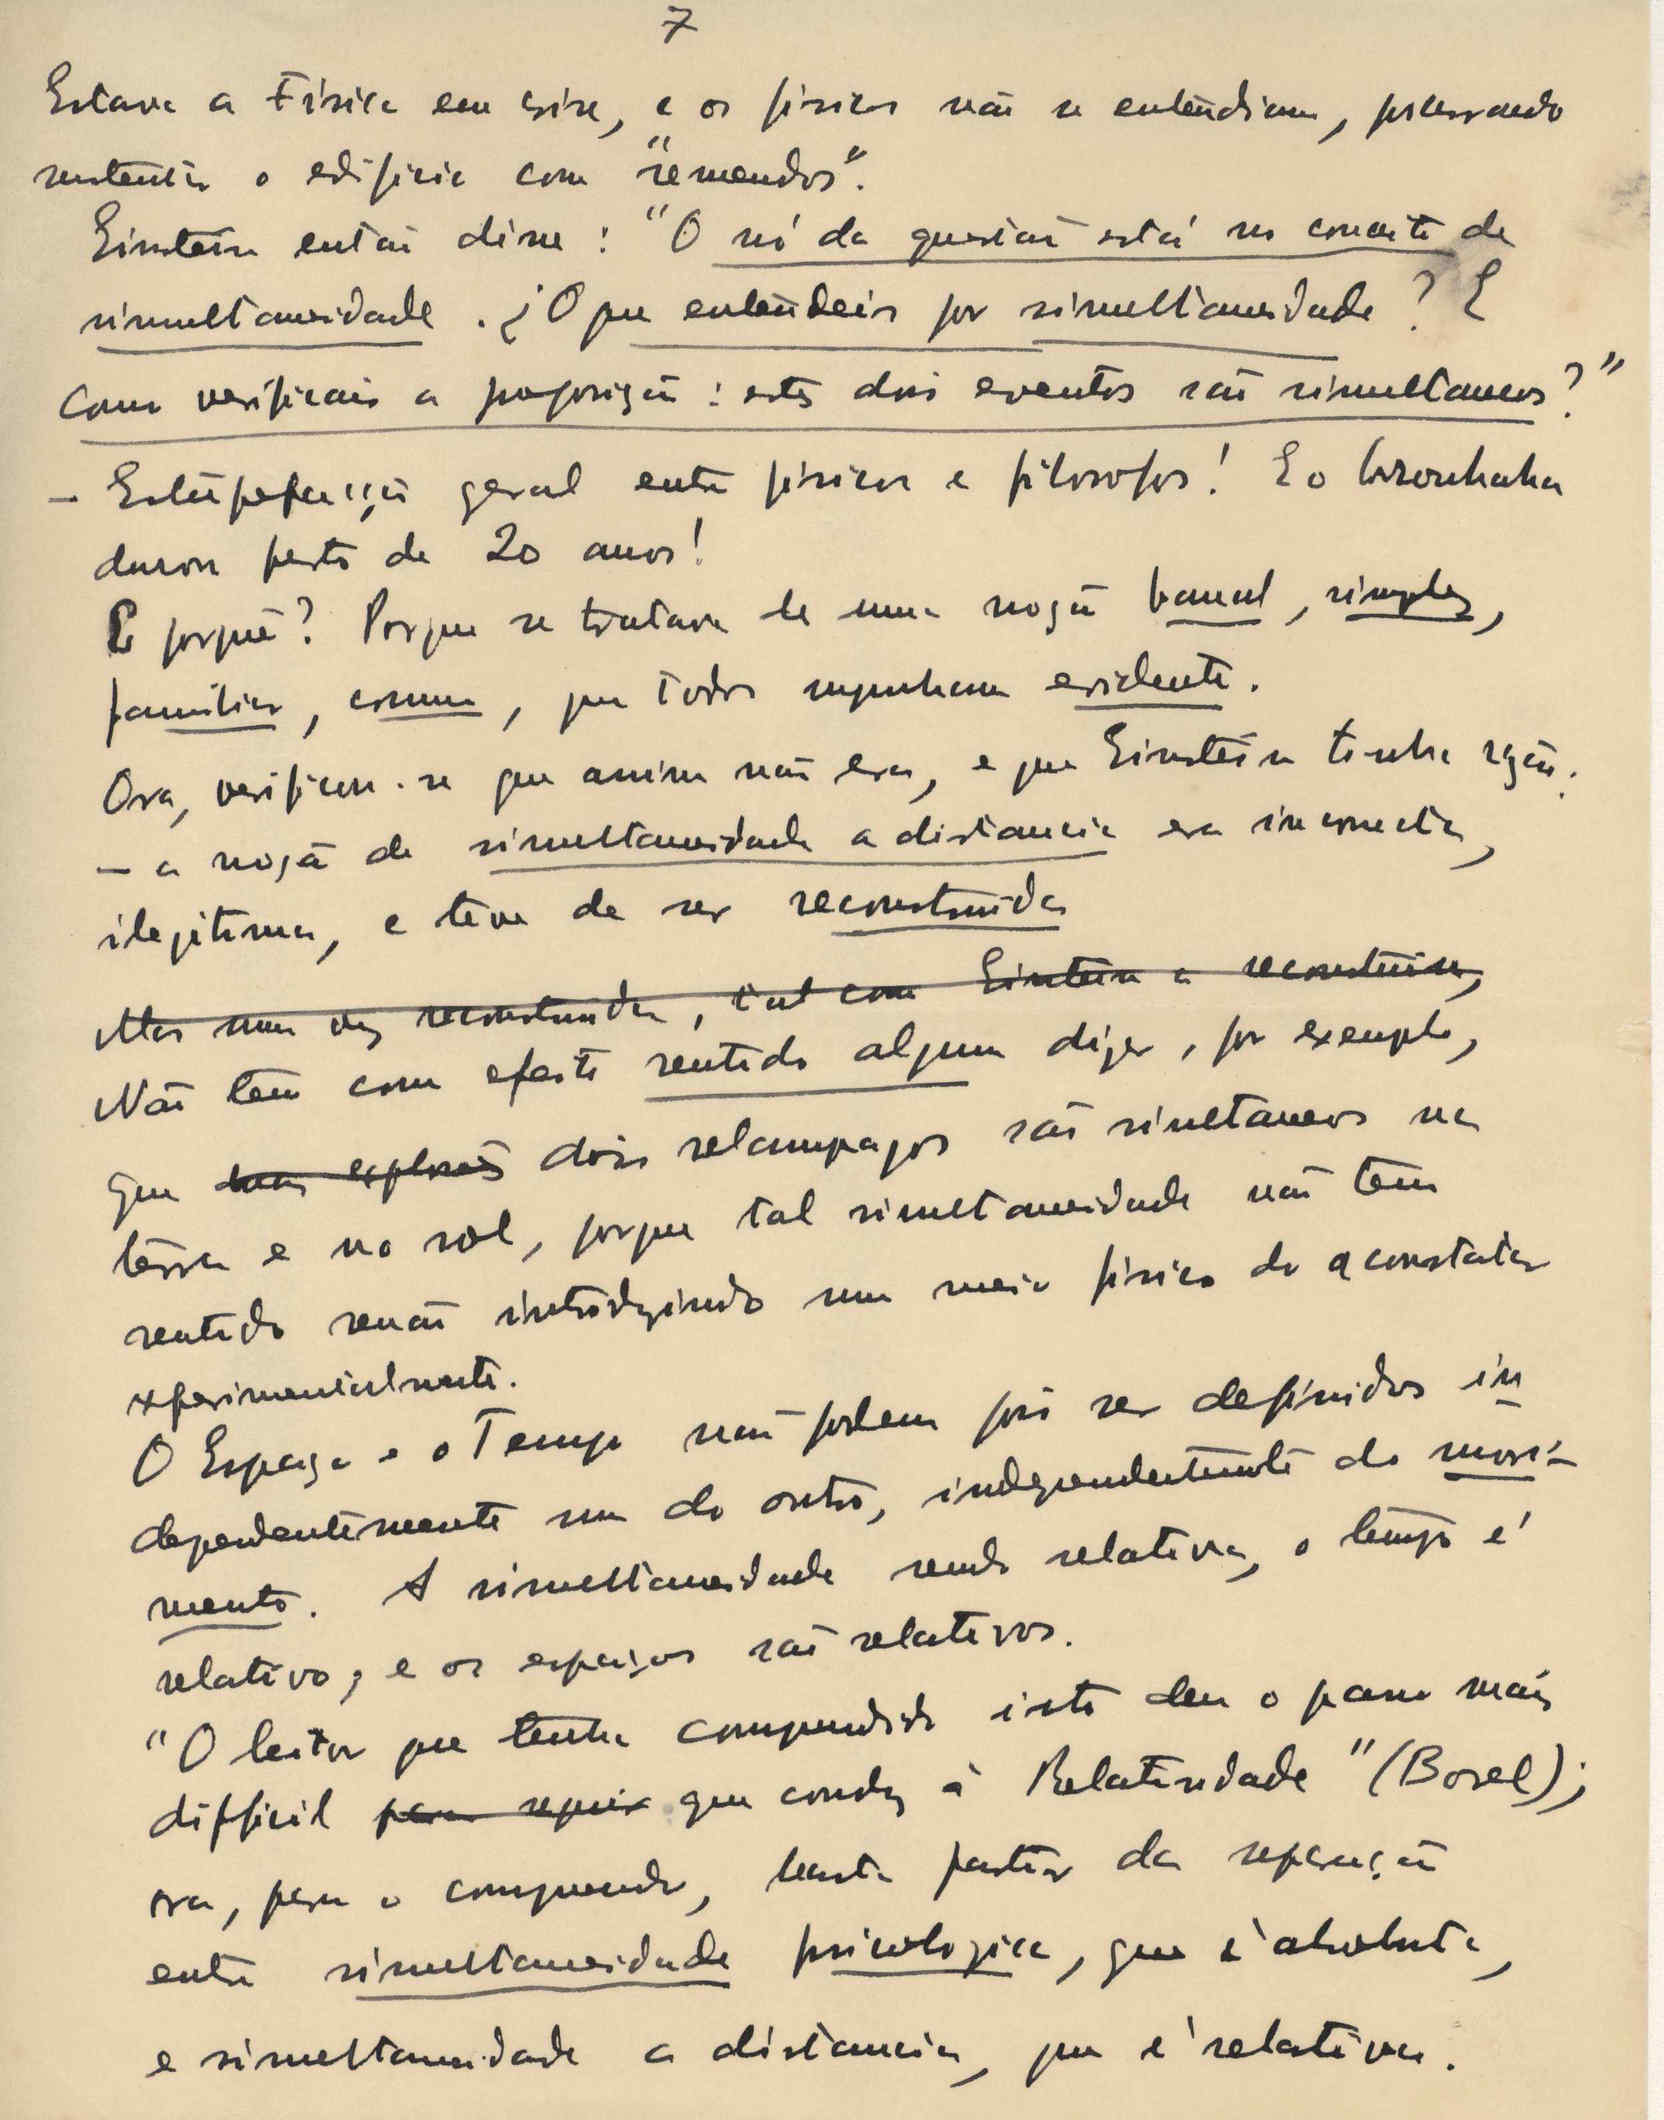 7
Estava a Física em crise, e os físicos não se entendiam, procurando
sustentar o edifício com "remendos".
Einstein então disse: "O nó da questão está no conceito de
simultaneidade. ¿O que entendeis por simultaneidade? E
como verificais a proposição: estes dois eventos são simultaneos?"
- Estupefacção geral entre físicos e filosofos! E o brouhaha
durou perto de 20 anos!
E porquê? Porque se tratava de uma noção banal, simples,
familiar, comum, que todos supunham evidente.
Ora, verificou-se que assim não era, e que Einstein tinha razão:
- a noção de simultaneidade a distancia era incorrecta,
ilegitima, e teve de ser reconstruida
Mas uma vez reconstruida, tal como Einstein a reconstruiu,
Não tem com efeito sentido algum dizer, por exemplo,
que duas explosões dois relampagos são simultaneos na
terra e no sol, porque tal simultaneidade não tem
sentido senão introduzindo um meio físico de a constatar
experimentalmente.
O Espaço e o Tempo não podem pois ser definidos in
dependentemente um do outro, independentemente do movi-
mento. A simultaneidade sendo relativa, o tempo é
relativo, e os espaços são relativos.
"O leitor que tenha compreendido isto deu o passo mais
difficil para seguir que conduz à Relatividade" (Borel);
ora, para o compreender, basta partir da separação
entre simultaneidade psicologica, que é absoluta,
e simultaneidade a distancia, que é relativa.